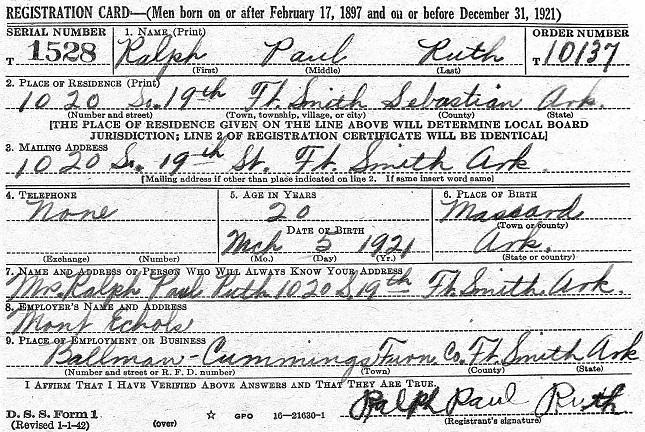 REGISTRATION CARD—(Men born on or after February 17, 1897 and on or before December 31, 1921)
SERIAL NUMBER 1. NAME (Print) ORDER NUMBER
T 1528 Ralph Paul Ruth T 10137
(First) (Middle) (Last)
2. PLACE OF RESIDENCE (Print)
1020 So. 19th Ft. Smith Sebastian Ark.
(Number and street) (Town, township, village, or city) (County) (State)
[THE PLACE OF RESIDENCE GIVEN ON THE LINE ABOVE WILL DETERMINE LOCAL BOARD
JURISDICTION; LINE 2 OF REGISTRATION CERTIFICATE WILL BE IDENTICAL]
3. MAILING ADDRESS
1020 So. 19th St. Ft. Smith Ark.
[Mailing address if other than place indicated on line 2. If same insert word same]
4. TELEPHONE 5. AGE IN YEARS 6. PLACE OF BIRTH
None 20 Massard
DATE OF BIRTH (Town or county)
Mch 5 1921 Ark.
(Exchange) (Number) (Mo.) (Day) (Yr.) (State or country)
7. NAME AND ADDRESS OF PERSON WHO WILL ALWAYS KNOW YOUR ADDRESS
Mrs. Ralph Paul Ruth 1020 S. 19th Ft. Smith. Ark.
8. EMPLOYER'S NAME AND ADDRESS
Mont Echols
9. PLACE OF EMPLOYMENT OR BUSINESS
Ballman-Cummings Furn Co. Ft. Smith Ark
(Number and street or R. F. D. number) (Town) (County) (State)
I AFFIRM THAT I HAVE VERIFIED ABOVE ANSWERS AND THAT THEY ARE TRUE.
Ralph Paul Ruth
D. S. S. Form 1 ☆ GPO 16—21630-1 (Registrant's signature)
(Revised 1-1-42) (over)